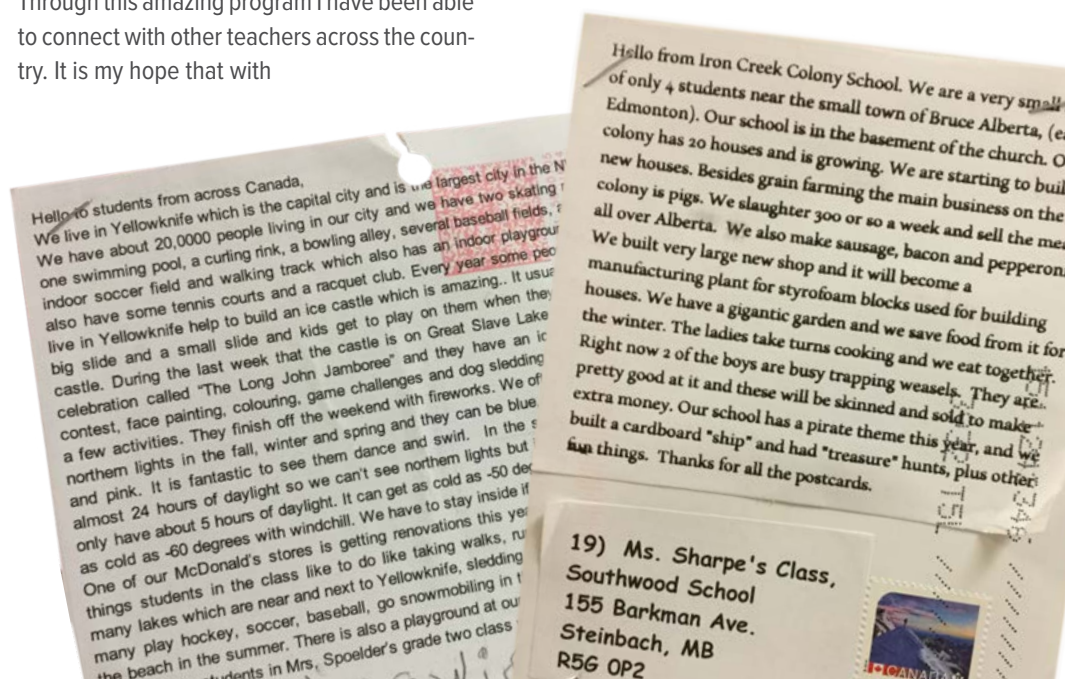 Through this amazing program I have been able
to connect with other teachers across the coun-
try. It is my hope that with
Hello to students from across Canada,
We live in Yellowknife which is the capital city and is the largest city in the
We have about 20,0000 people living in our city and we have two skating
one swimming pool, a curling rink, a bowling alley, several baseball fields,
indoor soccer field and walking track which also has an indoor
also have some tennis courts and a racquet club. Every year some
live in Yellowknife help to build an ice castle which is amazing.. It
big slide and a small slide and kids get to play on them when
castle. During the last week that the castle is on Great Slave Lake
celebration called "The Long John Jamboree" and they have an
contest, face painting, colouring, game challenges and dog sledding
a few activities. They finish off the weekend with fireworks. We
northern lights in the fall, winter and spring and they can be blue
and pink. It is fantastic to see them dance and swirl. In the
almost 24 hours of daylight so we can't see northern lights but
only have about 5 hours of daylight. It can get as cold as -50
as cold as -60 degrees with windchill. We have to stay inside if
One of our McDonald's stores is getting renovations this
things students in the class like to do like taking walks,
many lakes which are near and next to Yellowknife, sledding
many play hockey, soccer, baseball, go snowmobiling in
the beach in the summer. There is also a playground at
in Mrs. Spoelder's grade two class
Hello from Iron Creek Colony School. We are a very small
of only 4 students near the small town of Bruce Alberta,
Edmonton). Our school is in the basement of the church.
colony has 20 houses and is growing. We are starting to
new houses. Besides grain farming the main business on the
colony is pigs. We slaughter 300 or so a week and sell the
all over Alberta. We also make sausage, bacon and
We built very large new shop and it will become a
manufacturing plant for styrofoam blocks used for building
houses. We have a gigantic garden and we save food from it for
the winter. The ladies take turns cooking and we eat together.
Right now 2 of the boys are busy trapping weasels. They are
pretty good at it and these will be skinned and sold to make
extra money. Our school has a pirate theme this year, and we
built a cardboard "ship" and had "treasure" hunts, plus other
fun things. Thanks for all the postcards.
19) Ms. Sharpe's Class,
Southwood School
155 Barkman Ave.
Steinbach, MB
R5G 0P2
CANADA